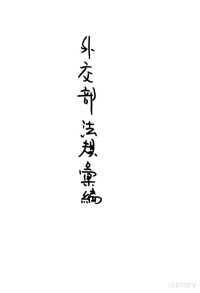 外交部法規彙編